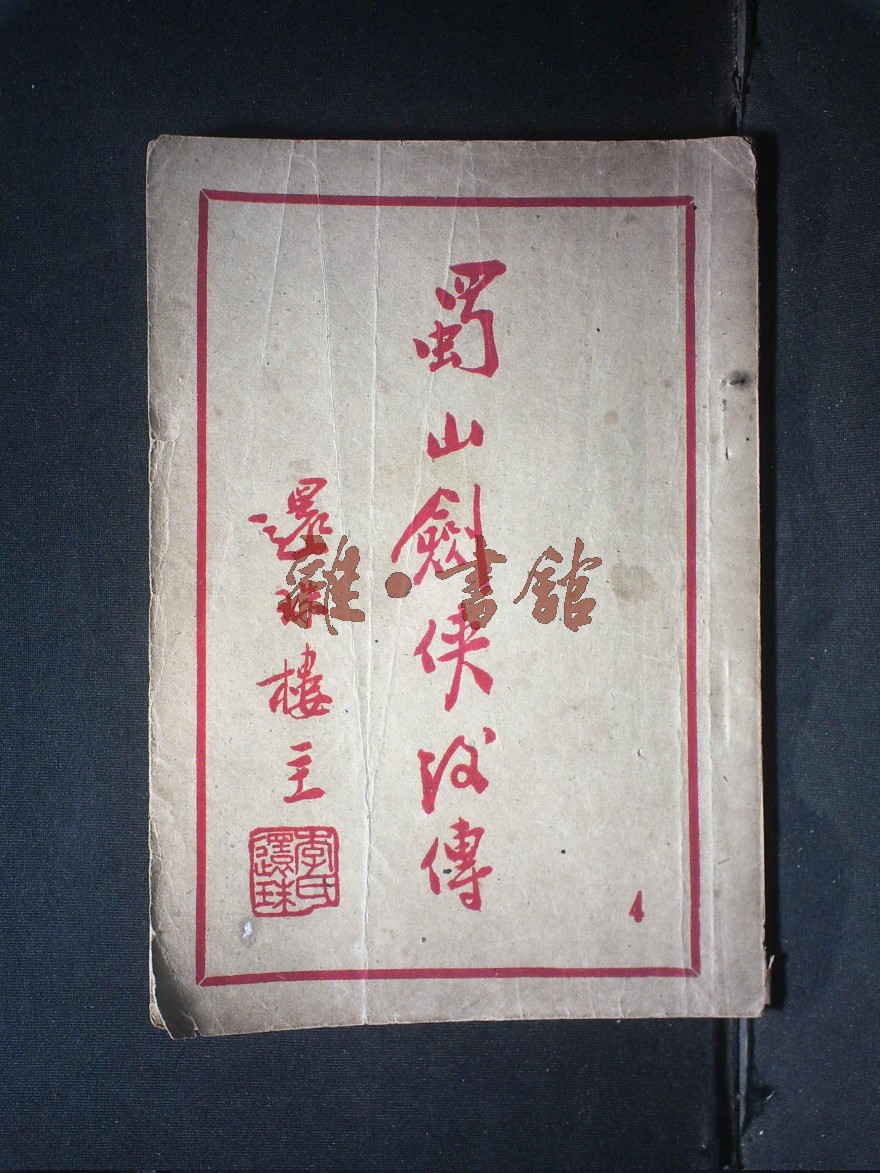 蜀山劍俠後傳
還珠樓主
李氏還珠
4
雜·書館